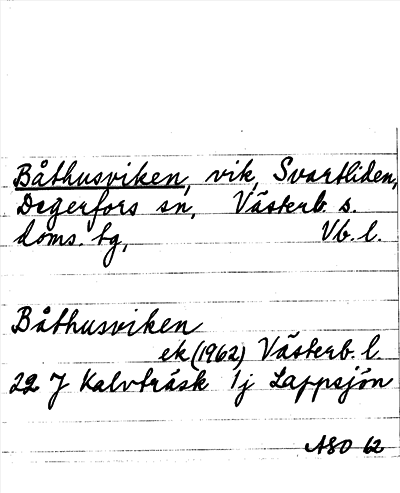 Båthusviken, vik, Svartliden,
Degerfors sn, Västerb. s.
doms. tg, Vb. l.
Båthusviken
ek (1962) Västerb. l.
22 J Kalvträsk 1j Lappsjön
ASO 62